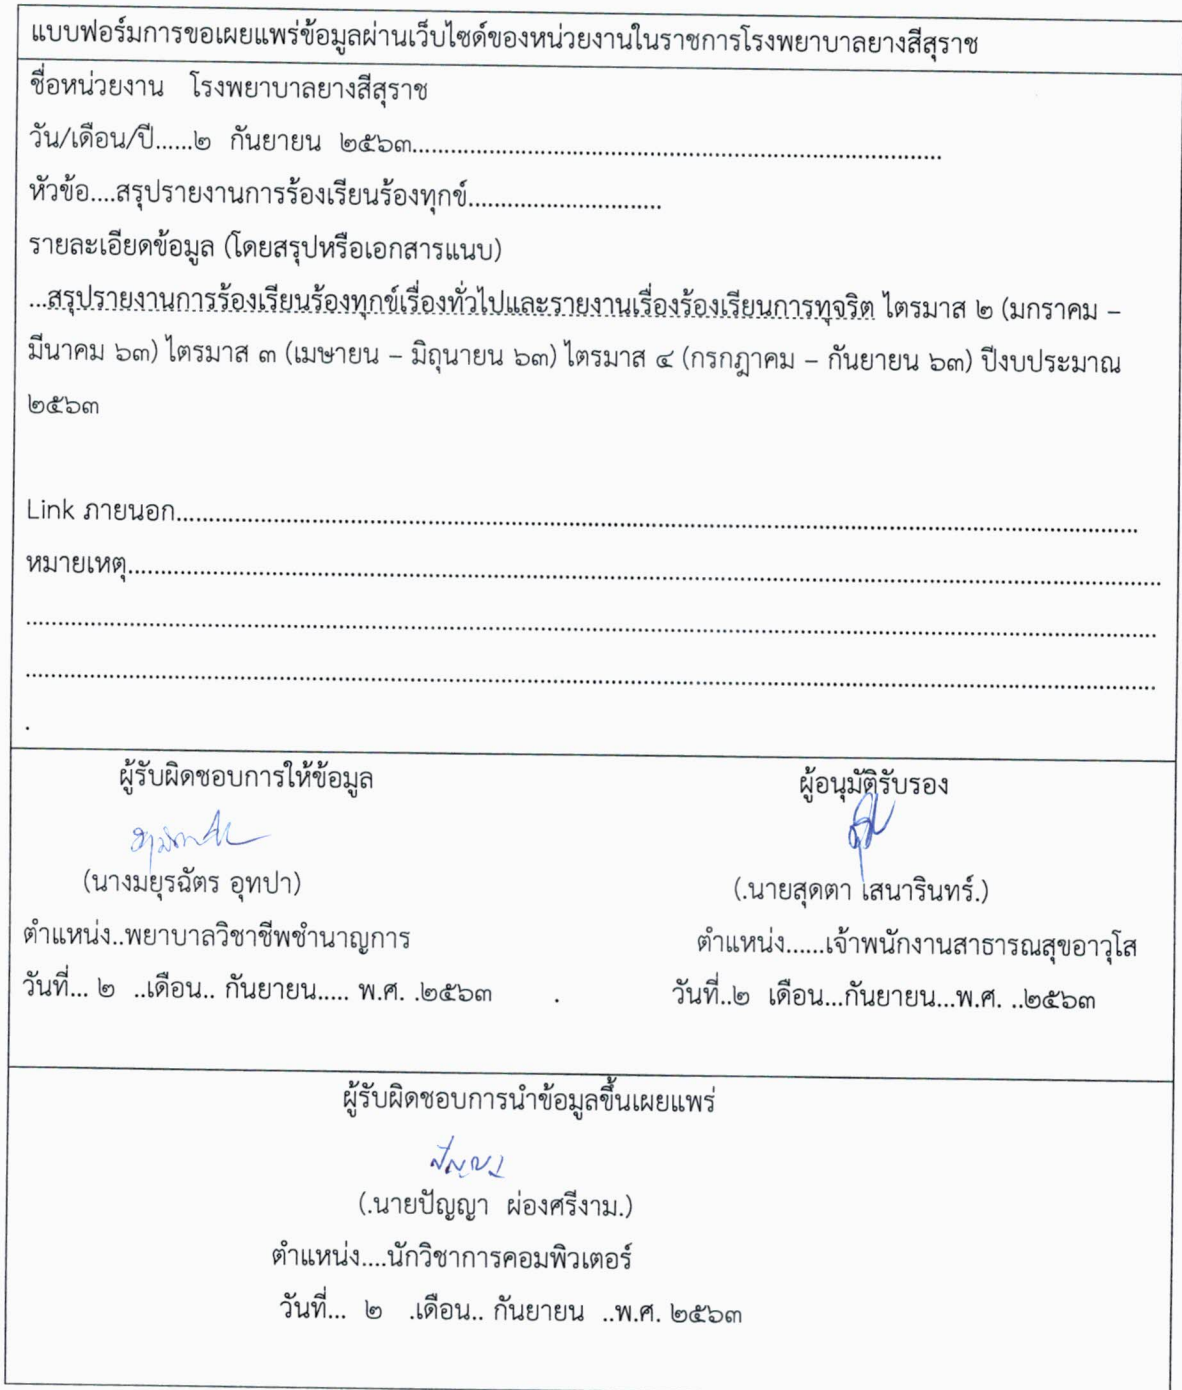 แบบฟอร์มการขอเผยแพร่ข้อมูลผ่านเว็บไซต์ของหน่วยงานในราชการโรงพยาบาลยางสีสุราช
ชื่อหน่วยงาน โรงพยาบาลยางสีสุราช
วัน/เดือน/ปี......๒ กันยายน ๒๕๖๓...........................................................................................
หัวข้อ....สรุปรายงานการร้องเรียนร้องทุกข์................................
รายละเอียดข้อมูล (โดยสรุปหรือเอกสารแนบ)
...สรุปรายงานการร้องเรียนร้องทุกข์เรื่องทั่วไปและรายงานเรื่องร้องเรียนการทุจริต ไตรมาส ๒ (มกราคม –
มีนาคม ๖๓) ไตรมาส ๓ (เมษายน – มิถุนายน ๖๓) ไตรมาส ๔ (กรกฎาคม – กันยายน ๖๓) ปีงบประมาณ
๒๕๖๓
Link ภายนอก....................................................................................................
หมายเหตุ....................................................................................................
....................................................................................................
....................................................................................................
.
ผู้รับผิดชอบการให้ข้อมูล ผู้อนุมัติรับรอง
(นางมยุรฉัตร อุทปา) (.นายสุดตา เสนารินทร์.)
ตำแหน่ง..พยาบาลวิชาชีพชำนาญการ ตำแหน่ง......เจ้าพนักงานสาธารณสุขอาวุโส
วันที่... ๒ ..เดือน.. กันยายน..... พ.ศ. .๒๕๖๓ . วันที่..๒ เดือน...กันยายน...พ.ศ. ..๒๕๖๓
ผู้รับผิดชอบการนำข้อมูลขึ้นเผยแพร่
ปัญญา
(.นายปัญญา ผ่องศรีงาม.)
ตำแหน่ง....นักวิชาการคอมพิวเตอร์
วันที่... ๒ .เดือน.. กันยายน ..พ.ศ. ๒๕๖๓